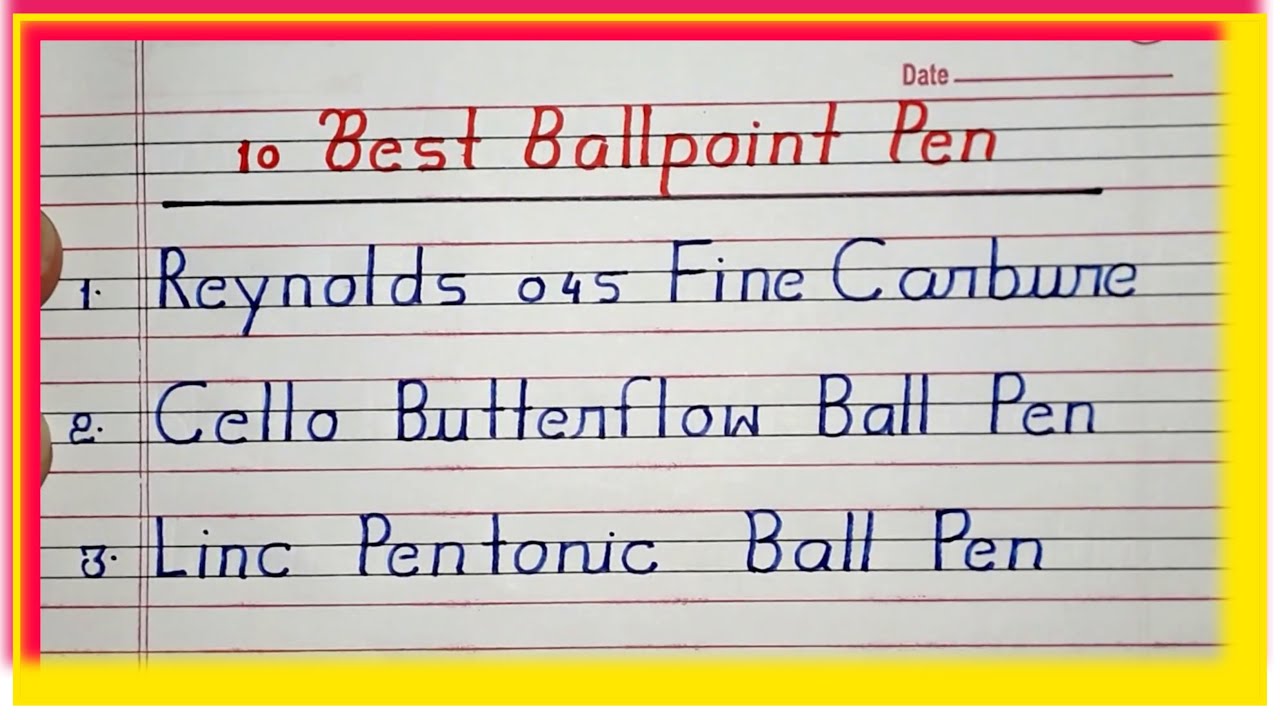 Date
10 Best Ballpoint Pen
1. Reynolds 045 Fine Carbure
2. Cello Butterflow Ball Pen
3. Linc Pentonic Ball Pen